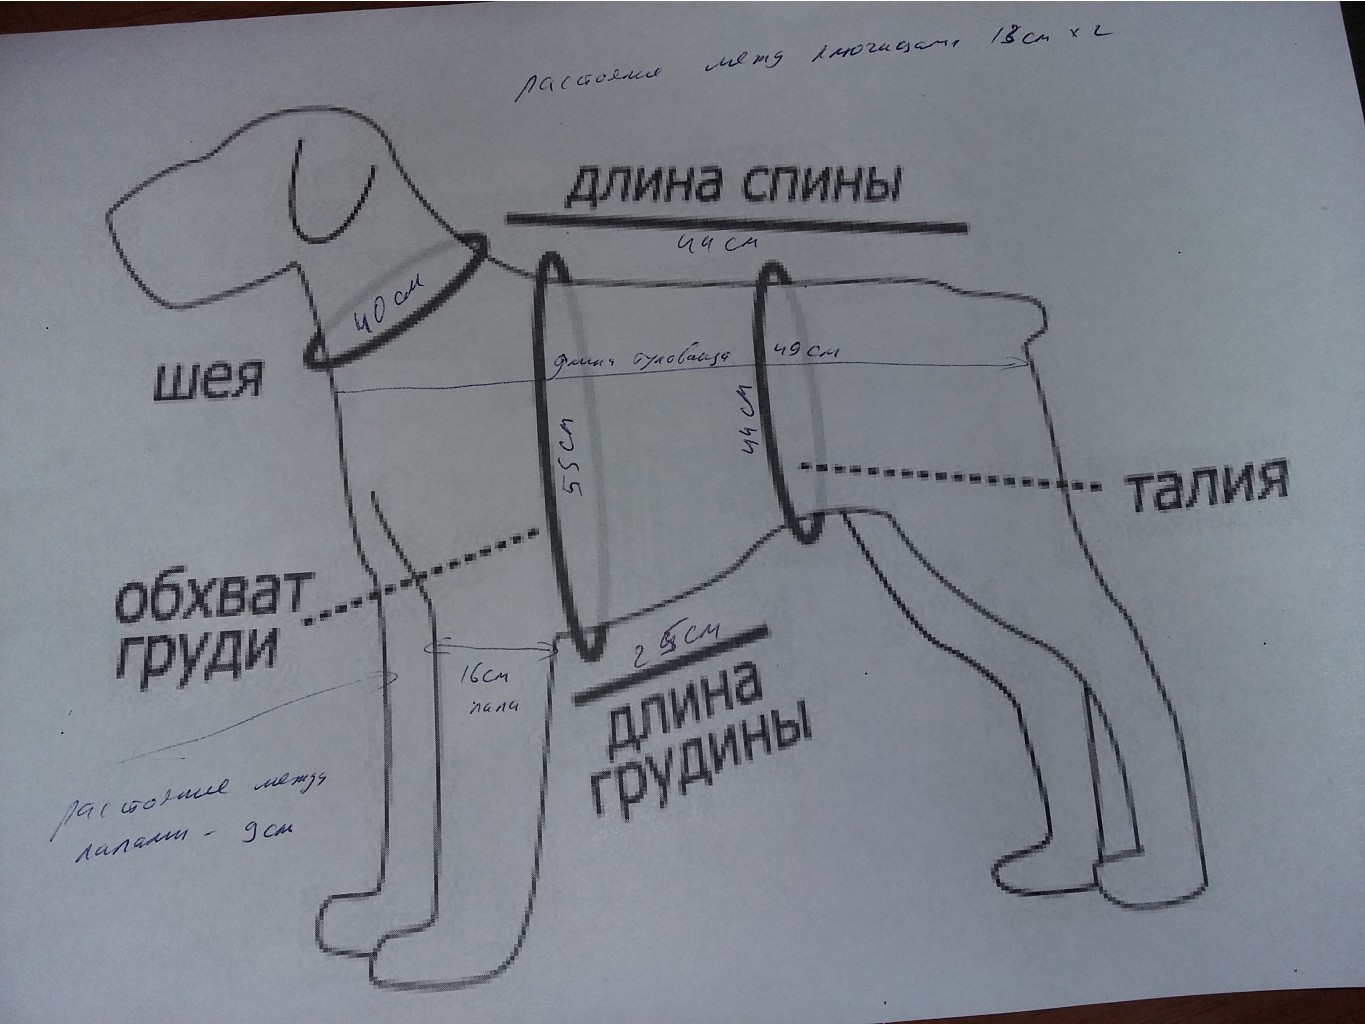 расстояние между ключицами 18см x 2
длина спины
44 см
40 см
шея
длина туловища 49 см
44 см
55 см
талия
обхват
груди
25см
16см
лапы
длина
грудины
расстояние между
лапами - 9 см